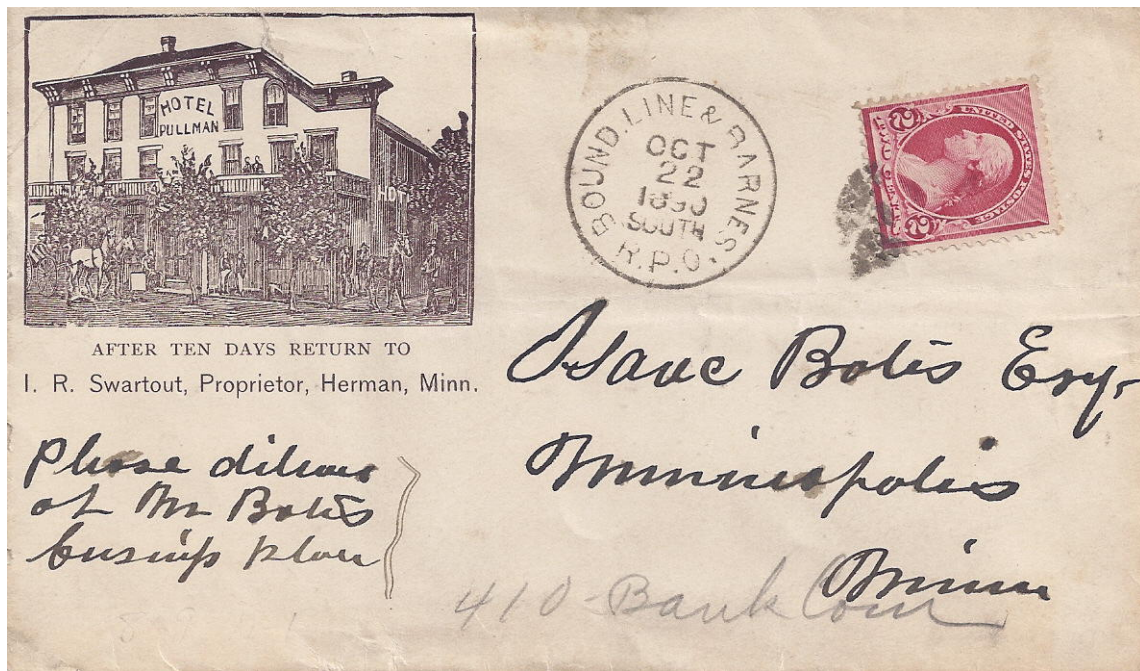 HOTEL
PULLMAN
HOT
AFTER TEN DAYS RETURN TO
I. R. Swartout, Proprietor, Herman, Minn.
BOUND. LINE & BARNES.
OCT
22
1890
SOUTH
R.P.O.
UNITED STATES POSTAGE
2 TWO CENTS 2
Isaac Botis Esq.
Minneapolis
Minn
410 Bank Com
Please deliver
at Mr Botis
business place